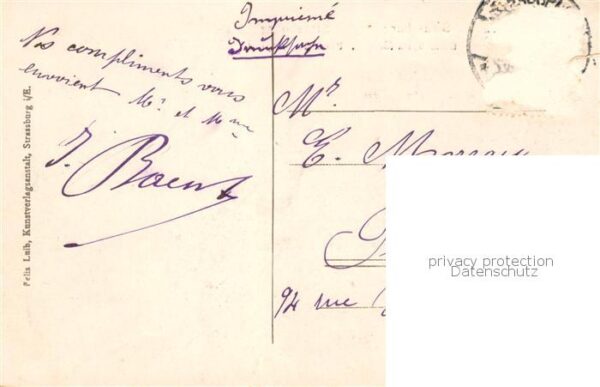 Imprimé
Drucksache
Nos compliments vous
envoient Mr et Mme
J.
Mr
E.
94 rue
Felix Luib, Kunstverlagsanstalt, Strassburg i/E.
privacy protection
Datenschutz